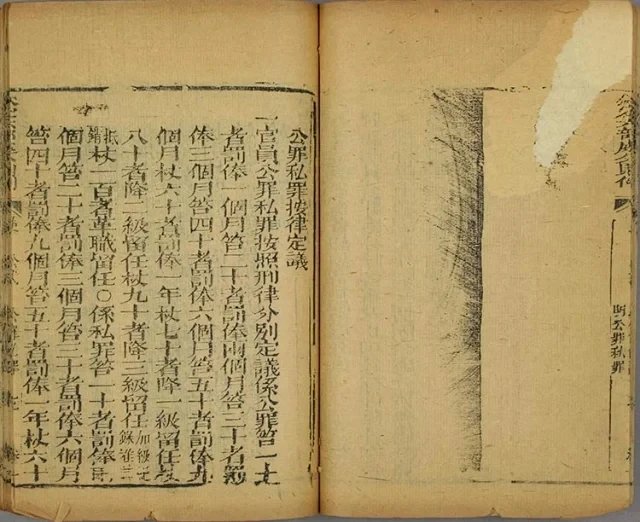 公罪私罪
公罪私罪按律定議
一官員公罪私罪按照刑律分別定議係公罪笞一十
者罰俸一個月笞二十者罰俸兩個月笞三十者罰
俸三個月笞四十者罰俸六個月笞五十者罰俸九
個月杖六十者罰俸一年杖七十者降一級留任杖
八十者降二級留任杖九十者降三級留任加級
抵銷杖一百者革職留任○係私罪笞一十者罰俸
個月笞二十者罰俸三個月笞三十者罰俸六個月
笞四十者罰俸九個月笞五十者罰俸一年杖六十